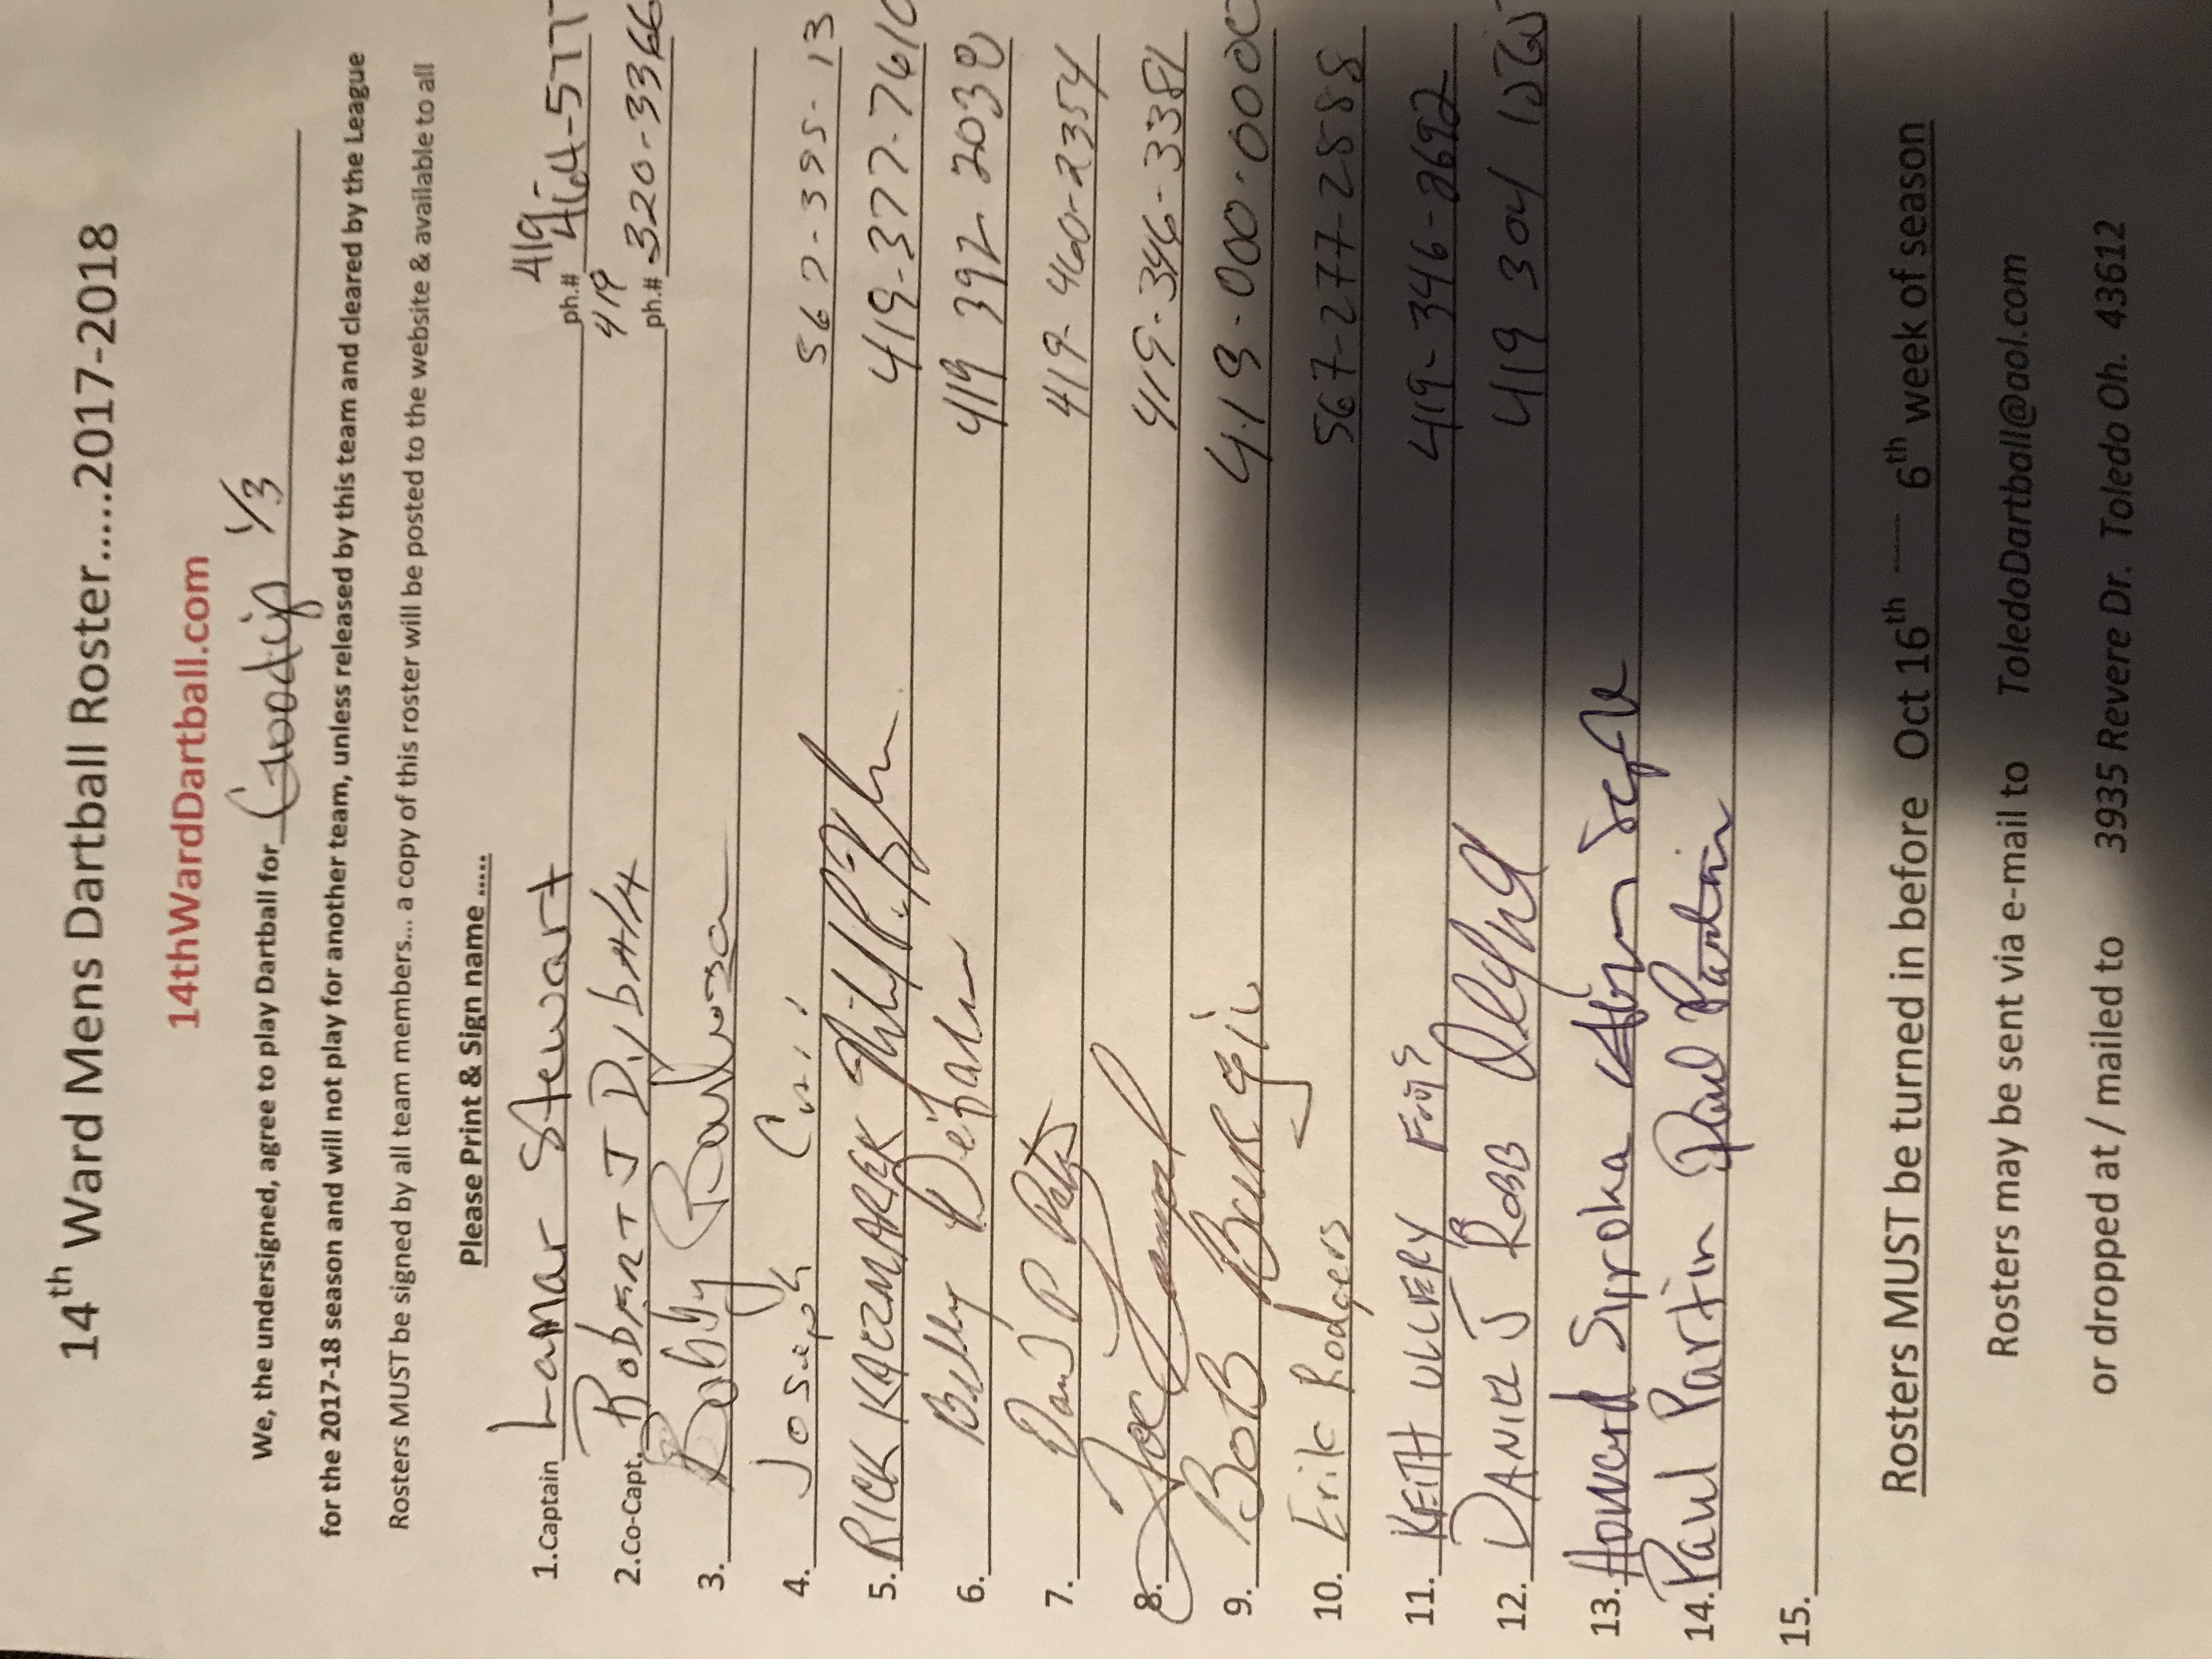 14th Ward Mens Dartball Roster.....2017-2018
14thWardDartball.com
We, the undersigned, agree to play Dartball for Goodip 1/3
for the 2017-18 season and will not play for another team, unless released by this team and cleared by the League
Rosters MUST be signed by all team members... a copy of this roster will be posted to the website & available to all
Please Print & Sign name .....
1.Captain Lamar Stewart ph.# 419 464-577
2.Co-Capt. Robert J Dybala ph.# 419 320-3366
3. Bobby
4. Joseph 567-395-13
5. RICK KACZMAREK 419-377-7610
6. Billy 419 392-2038
7. 419-460-2354
8. Joe 419-346-3381
9. BOB 419-000-0000
10. Erik Rodgers 567-277-2588
11. KEITH ULLERY 419-346-2692
12. DANIEL J ROBB 419 304
13. Howard Siroka
14. Paul Partin Paul Partin
15.
Rosters MUST be turned in before Oct 16th ------ 6th week of season
Rosters may be sent via e-mail to ToledoDartball@aol.com
or dropped at / mailed to 3935 Revere Dr. Toledo Oh. 43612